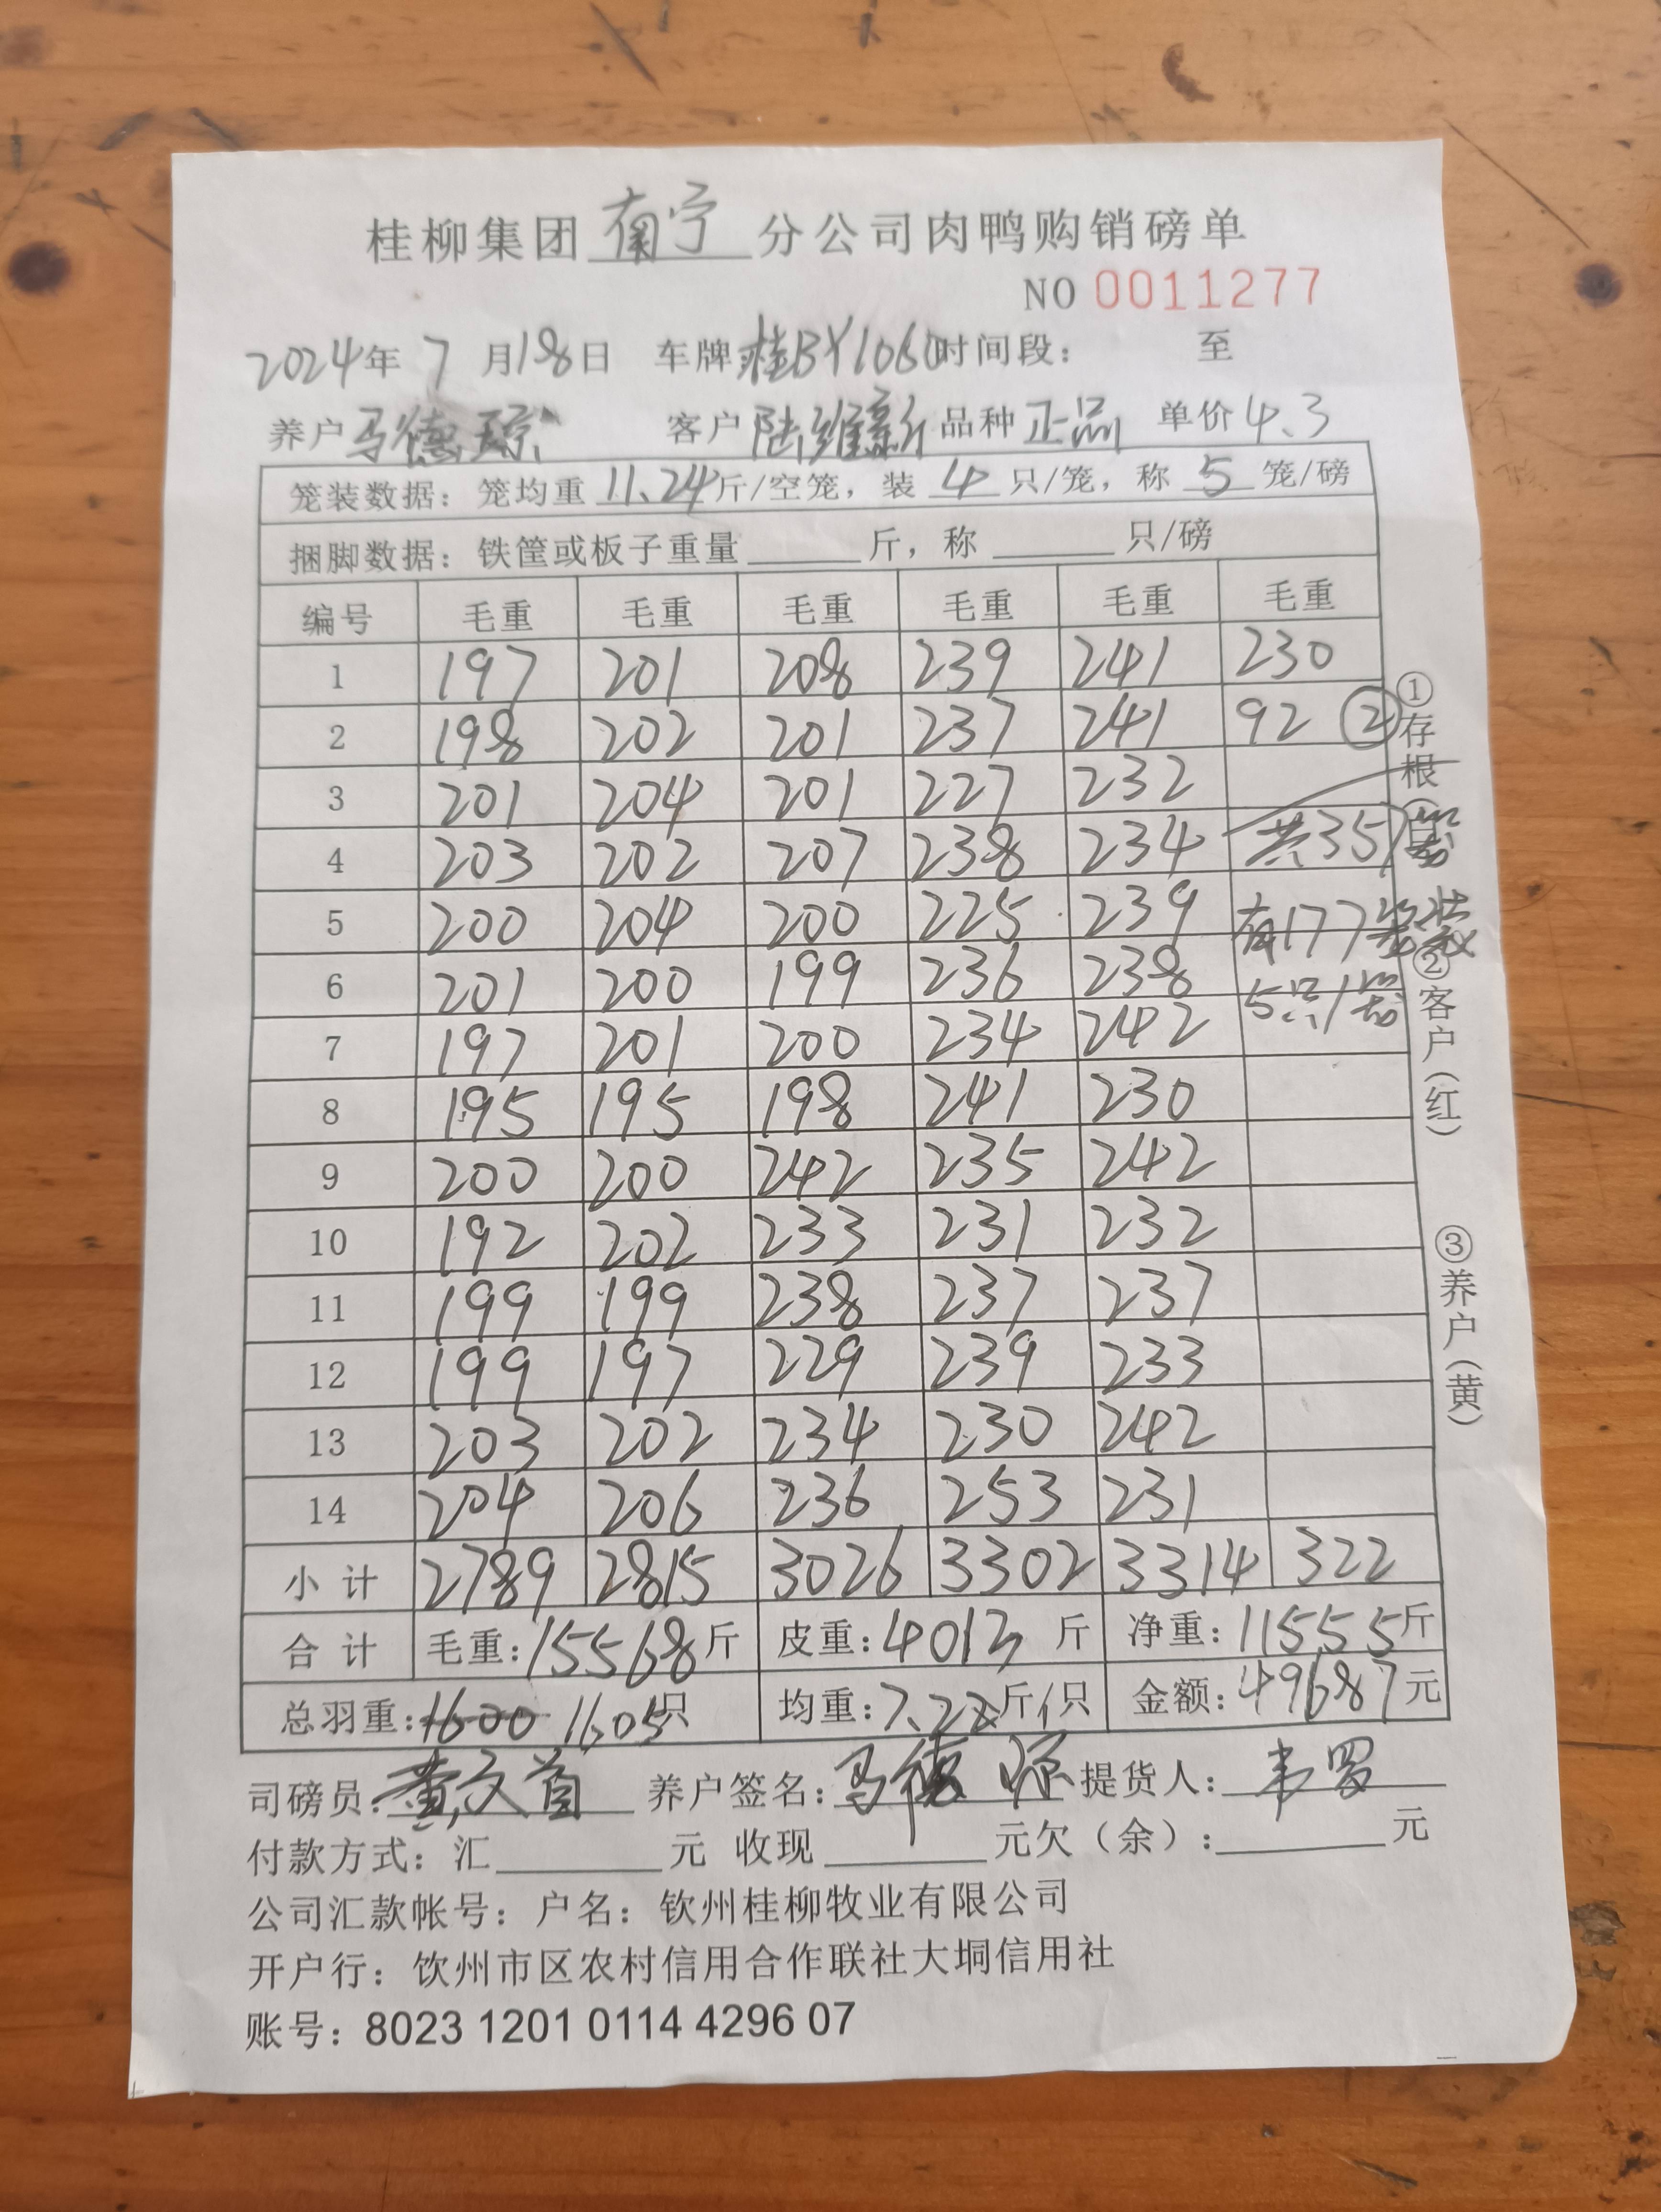 桂柳集团南宁分公司肉鸭购销磅单
NO 0011277
2024年 7 月18日 车牌桂BY1060时间段： 至
养户马德琼 客户陆维新 品种正品 单价4.3
笼装数据：笼均重 11.24斤/空笼，装 4 只/笼，称 5 笼/磅
捆脚数据：铁筐或板子重量______斤，称______只/磅
编号 毛重 毛重 毛重 毛重 毛重 毛重
1 197 201 208 239 241 230
2 198 202 201 237 241 92 ②
3 201 204 201 227 232
4 203 202 207 238 234 共357笼
5 200 204 200 225 239 有177笼装
6 201 200 199 236 238 5只/笼
7 197 201 200 234 242
8 195 195 198 241 230
9 200 200 242 235 242
10 192 202 233 231 232
11 199 199 238 237 237
12 199 197 229 239 233
13 203 202 234 230 242
14 204 206 236 253 231
小计 2789 2815 3026 3302 3314 322
合计 毛重：15568斤 皮重：4013斤 净重：11555斤
总羽重：1600 1605只 均重：7.22斤/只 金额：49687元
司磅员： 养户签名：马德琼 提货人：韦罗
付款方式：汇______元 收现______元欠（余）：______元
公司汇款帐号：户名：钦州桂柳牧业有限公司
开户行：钦州市区农村信用合作联社大垌信用社
账号：8023 1201 0114 4296 07
①存根（白）
②客户（红）
③养户（黄）